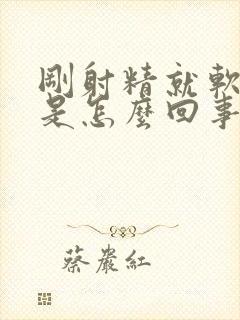 剛射精就軟
是怎麼回事
蔡嚴紅